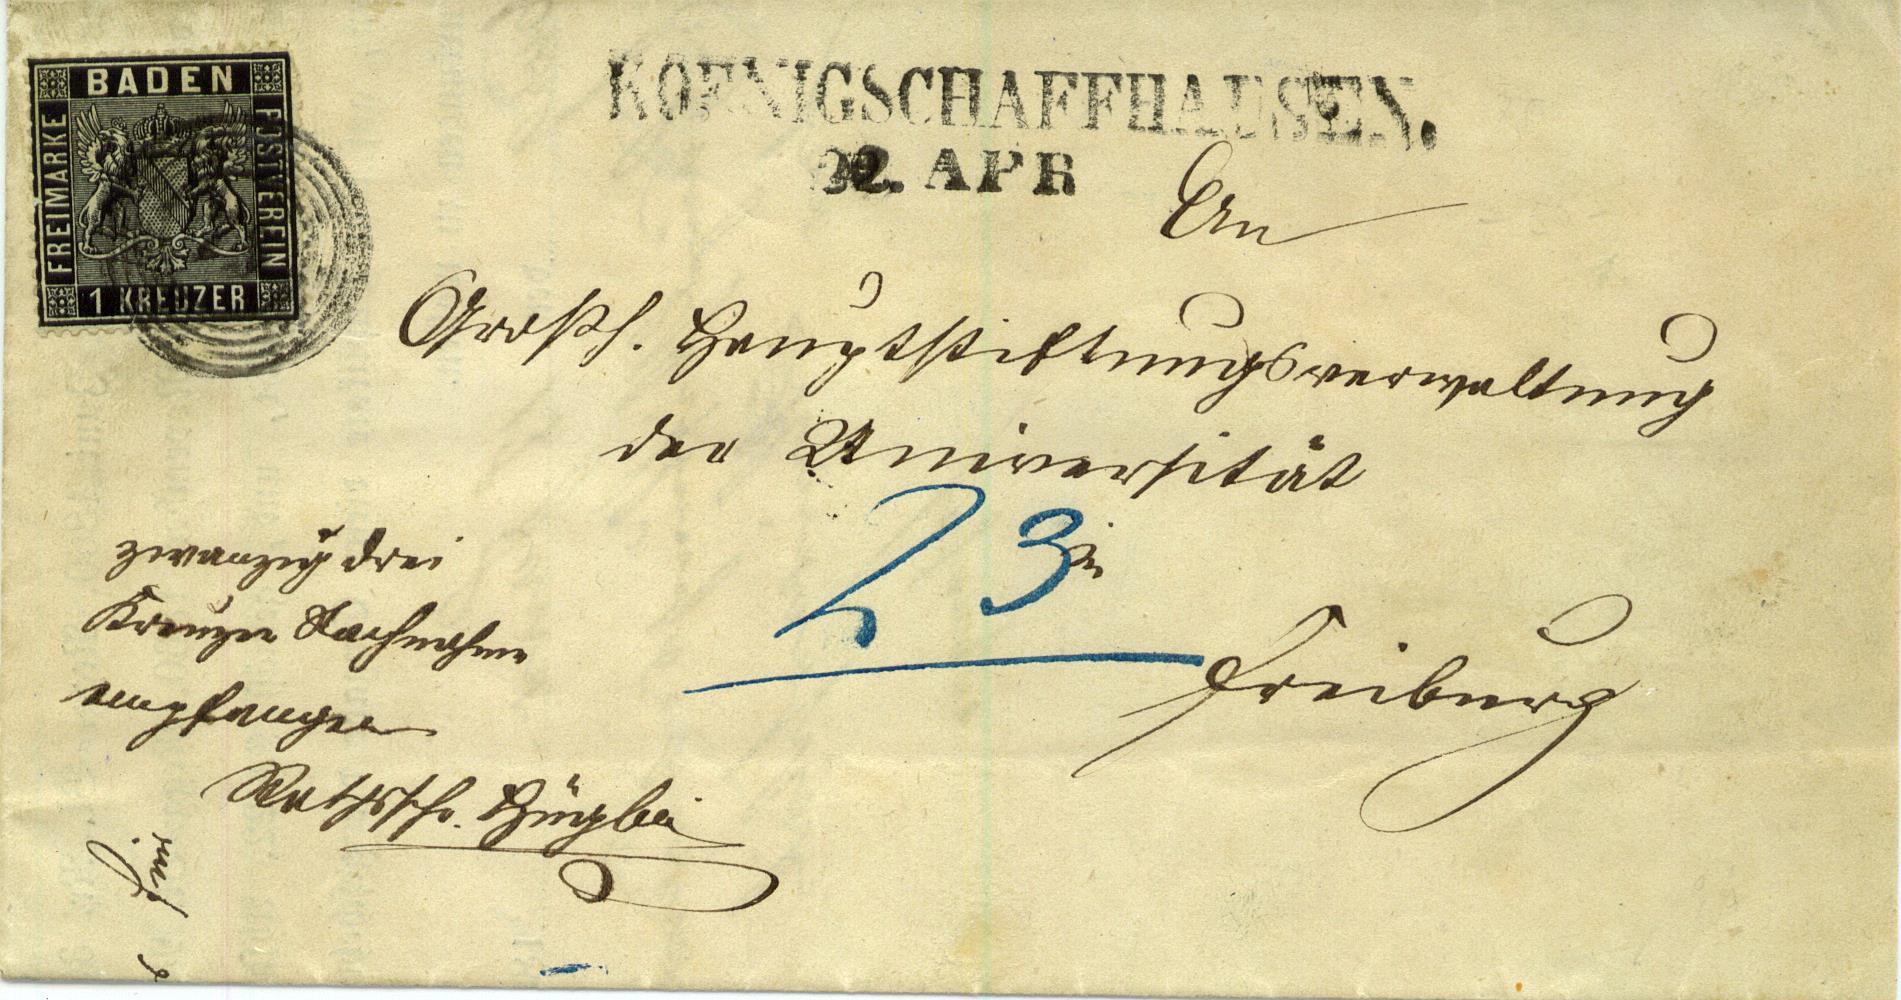 BADEN
FREIMARKE
POSTVEREIN
1 KREUZER
KOENIGSCHAFFHAUSEN.
22. APR
An
Großh. Hauptstiftungsverwaltung
der Universität
23
in
Freiburg
zwanzig drei
Kreuzer Nachnahme
empfangen
Rathsschr.